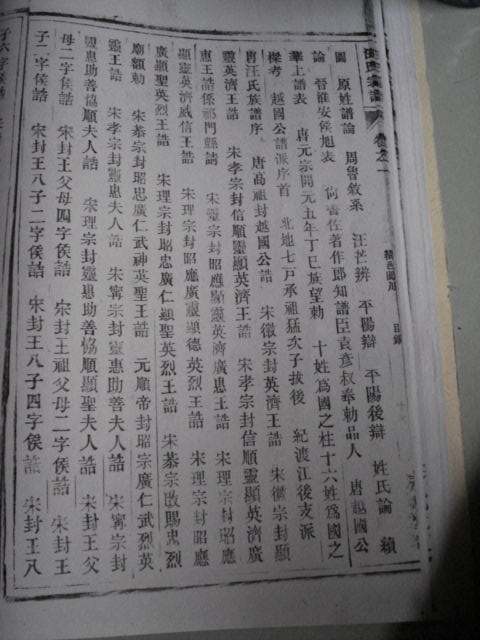 卷之一
目錄
圖 原姓譜論 周魯敘系 汪芒辨 平陽辯 平陽後辯 姓氏論 績
論 晉淮安侯旭表 何書佐著作郎知譜臣袁彥叔奉勅品人 唐越國公
華上譜表 唐元宗開元五年丁巳族望勅 十姓爲國之柱十六姓爲國之
樑考 越國公譜派序首 北地七戸承祖猛次子拔後 紀渡江後支派
唐汪氏族譜序 唐高祖封越國公誥 宋徽宗封英濟王誥 宋徽宗封顯
靈英濟王誥 宋孝宗封信順靈顯英濟王誥 宋孝宗封信順靈顯英濟廣
惠王誥係祁門縣請 宋寧宗封昭應顯靈英濟廣惠王誥 宋理宗封昭應
顯靈英濟威信王誥 宋理宗封昭應廣靈顯德英烈王誥 宋理宗封昭應
廣顯聖英烈王誥 宋理宗封昭忠廣仁顯聖英烈王誥 宋恭宗改賜忠烈
廟額勅 宋恭宗封昭忠廣仁武神英聖王誥 元順帝封昭忠廣仁武烈英
靈王誥 宋孝宗封靈惠夫人誥 宋寧宗封靈惠助善夫人誥 宋寧宗封
靈惠助善協順夫人誥 宋理宗封靈惠助善協順顯聖夫人誥 宋封王父
母二字侯誥 宋封王父母四字侯誥 宋封王祖父母二字侯誥 宋封王
子二字侯誥 宋封王八子二字侯誥 宋封王八子四字侯誥 宋封王八